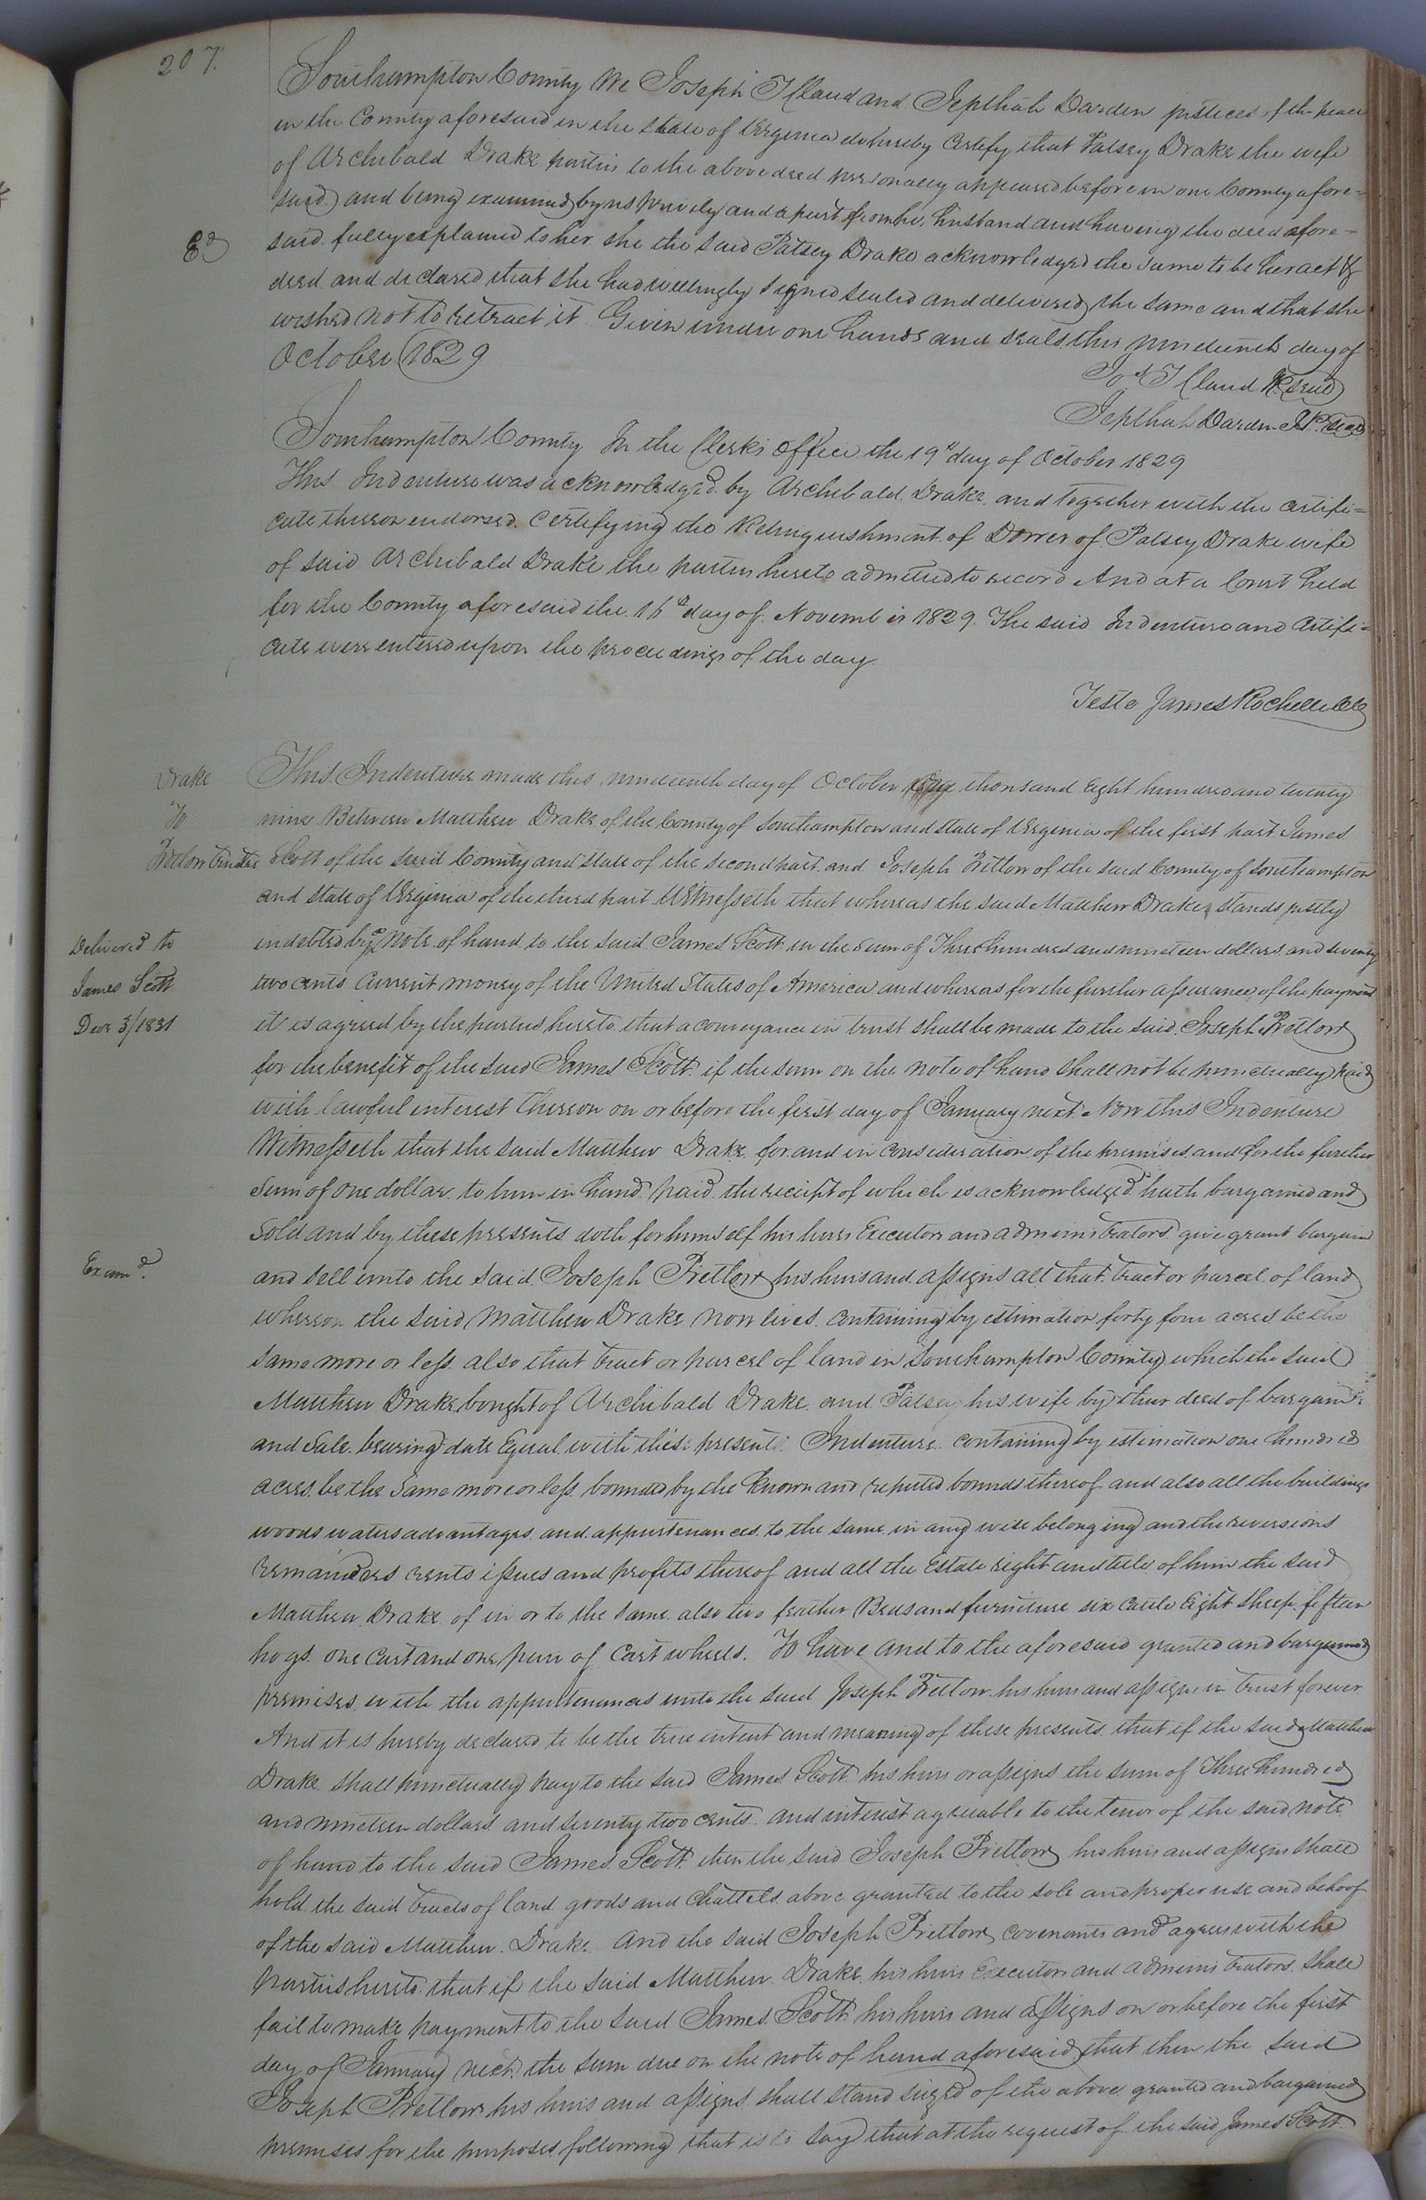 207.
Southampton County We Joseph T Claud and Jepthah Darden justices of the peace
in the County aforesaid in the state of Virginia do hereby Certify that Patsey Drake the wife
of Archibald Drake parties to the above deed personally appeared before in our County afore=
said and being examined by us privily and apart from her husband and having the deed afore=
said fully explained to her she the said Patsey Drake acknowledged the same to be her act &
deed and declared that she had willingly signed sealed and delivered the same and that she
wished not to retract it Given under our hands and seals this nineteenth day of
October 1829
Jos T Claud JP (seal)
Jepthah Darden J.P. (seal)
Ed
Southampton County In the Clerks office the 19th day of October 1829
This Indenture was acknowledged by Archibald Drake and together with the certifi=
cate thereon endorsed certifying the Relinquishment of Dower of Patsey Drake wife
of said Archibald Drake the parties hereto admitted to record And at a Court held
for the County aforesaid the 16th day of November 1829 The said Indenture and Certifi=
cate were entered upon the proceedings of the day
Teste James Rochelle Clk
Drake
To
Pretlow Trustee
Delivered to
James Scott
Decr 3/1831
Examd.
This Indenture made this nineteenth day of October thousand Eight hundred and twenty
nine Between Matthew Drake of the County of Southampton and state of Virginia of the first part James
Scott of the said County and state of the second part and Joseph Pretlow of the said County of Southampton
and state of Virginia of the third part Witnesseth that whereas the said Matthew Drake stands justly
indebted by note of hand to the said James Scott in the sum of Three hundred and nineteen dollars and seventy
two cents Current money of the United States of America and whereas for the further assurance of the payment
it is agreed by the parties hereto that a conveyance in trust shall be made to the said Joseph Pretlow
for the benefit of the said James Scott if the sum on the note of hand shall not be punctually paid
with lawful interest thereon on or before the first day of January next Now this Indenture
Witnesseth that the said Matthew Drake for and in consideration of the premises and for the further
Sum of one dollar to him in hand paid the receipt of which is acknowledged hath bargained and
Sold and by these presents doth for himself his heirs Executors and administrators give grant bargain
and sell unto the said Joseph Pretlow his heirs and assigns all that tract or parcel of land
whereon the said Matthew Drake now lives containing by estimation forty four acres be the
same more or less also that tract or parcel of land in Southampton County which the said
Matthew Drake bought of Archibald Drake and Patsey his wife by their deed of bargain
and Sale bearing date Equal with this present Indenture containing by estimation one hundred
acres be the same more or less bounded by the known and reputed bounds thereof and also all the buildings
woods waters advantages and appurtenances to the same in any wise belonging and the reversions
remainders rents issues and profits thereof and all the Estate right and title of him the said
Matthew Drake of in or to the same also two feather Beds and furniture six cattle Eight sheep fifteen
hogs one Cart and one pair of Cart wheels. To have and to the aforesaid granted and bargained
premises with the appurtenances unto the said Joseph Pretlow his heirs and assigns in trust forever
And it is hereby declared to be the true intent and meaning of these presents that if the said Matthew
Drake shall punctually pay to the said James Scott his heirs or assigns the sum of Three hundred
and nineteen dollars and seventy two cents and interest agreeable to the tenor of the said note
of hand to the said James Scott then the said Joseph Pretlow his heirs and assigns shall
hold the said tracts of land goods and chattels above granted to the sole and proper use and behoof
of the said Matthew Drake And the said Joseph Pretlow covenants and agrees with the
parties hereto that if the said Matthew Drake his heirs Executors and administrators shall
fail to make payment to the said James Scott his heirs and assigns on or before the first
day of January next the sum due on the note of hand aforesaid that then the said
Joseph Pretlow his heirs and assigns shall stand siezed of the above granted and bargained
premises for the purposes following that is to say that at the request of the said James Scott